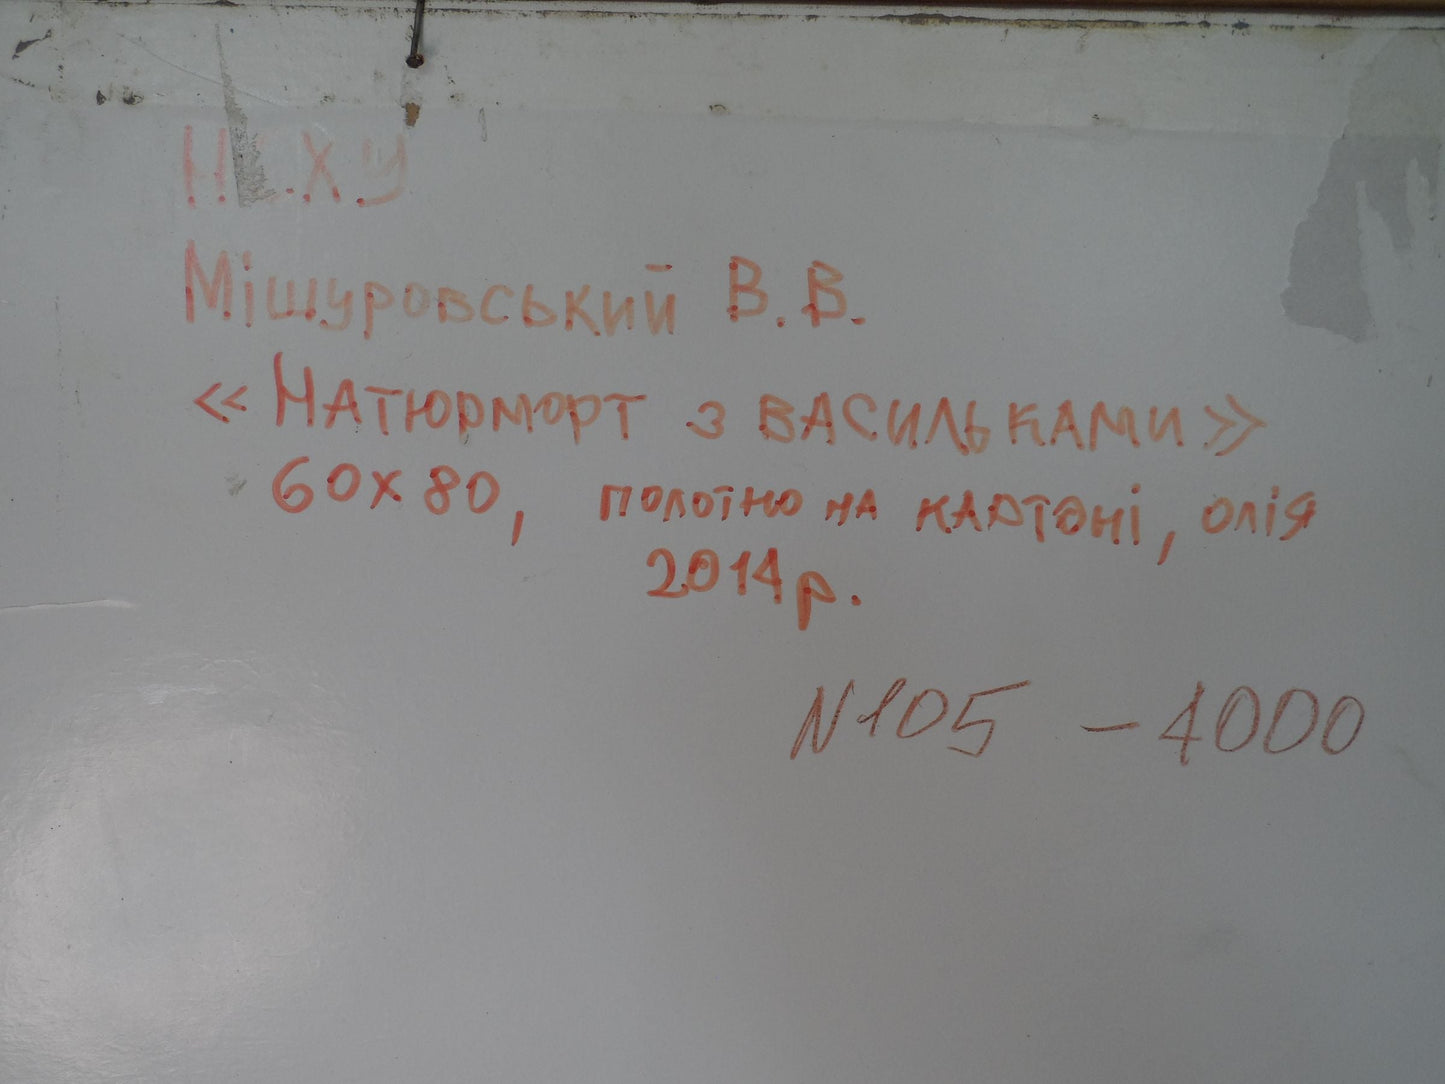 НСХУ
Мішуровський В.В.
«Натюрморт з васильками»
60х80, полотно на картоні, олія
2014р.
N105 – 4000